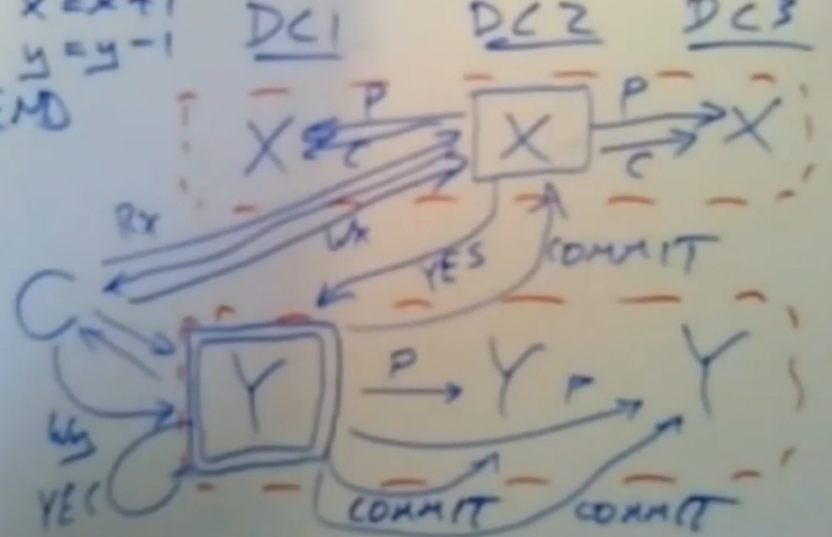 x = x + 1
y = y - 1
END
DC1 DC2 DC3
P P
X X X
C C
Rx
Wx
YES COMMIT
C
Y P Y P Y
Wy
YES
COMMIT COMMIT